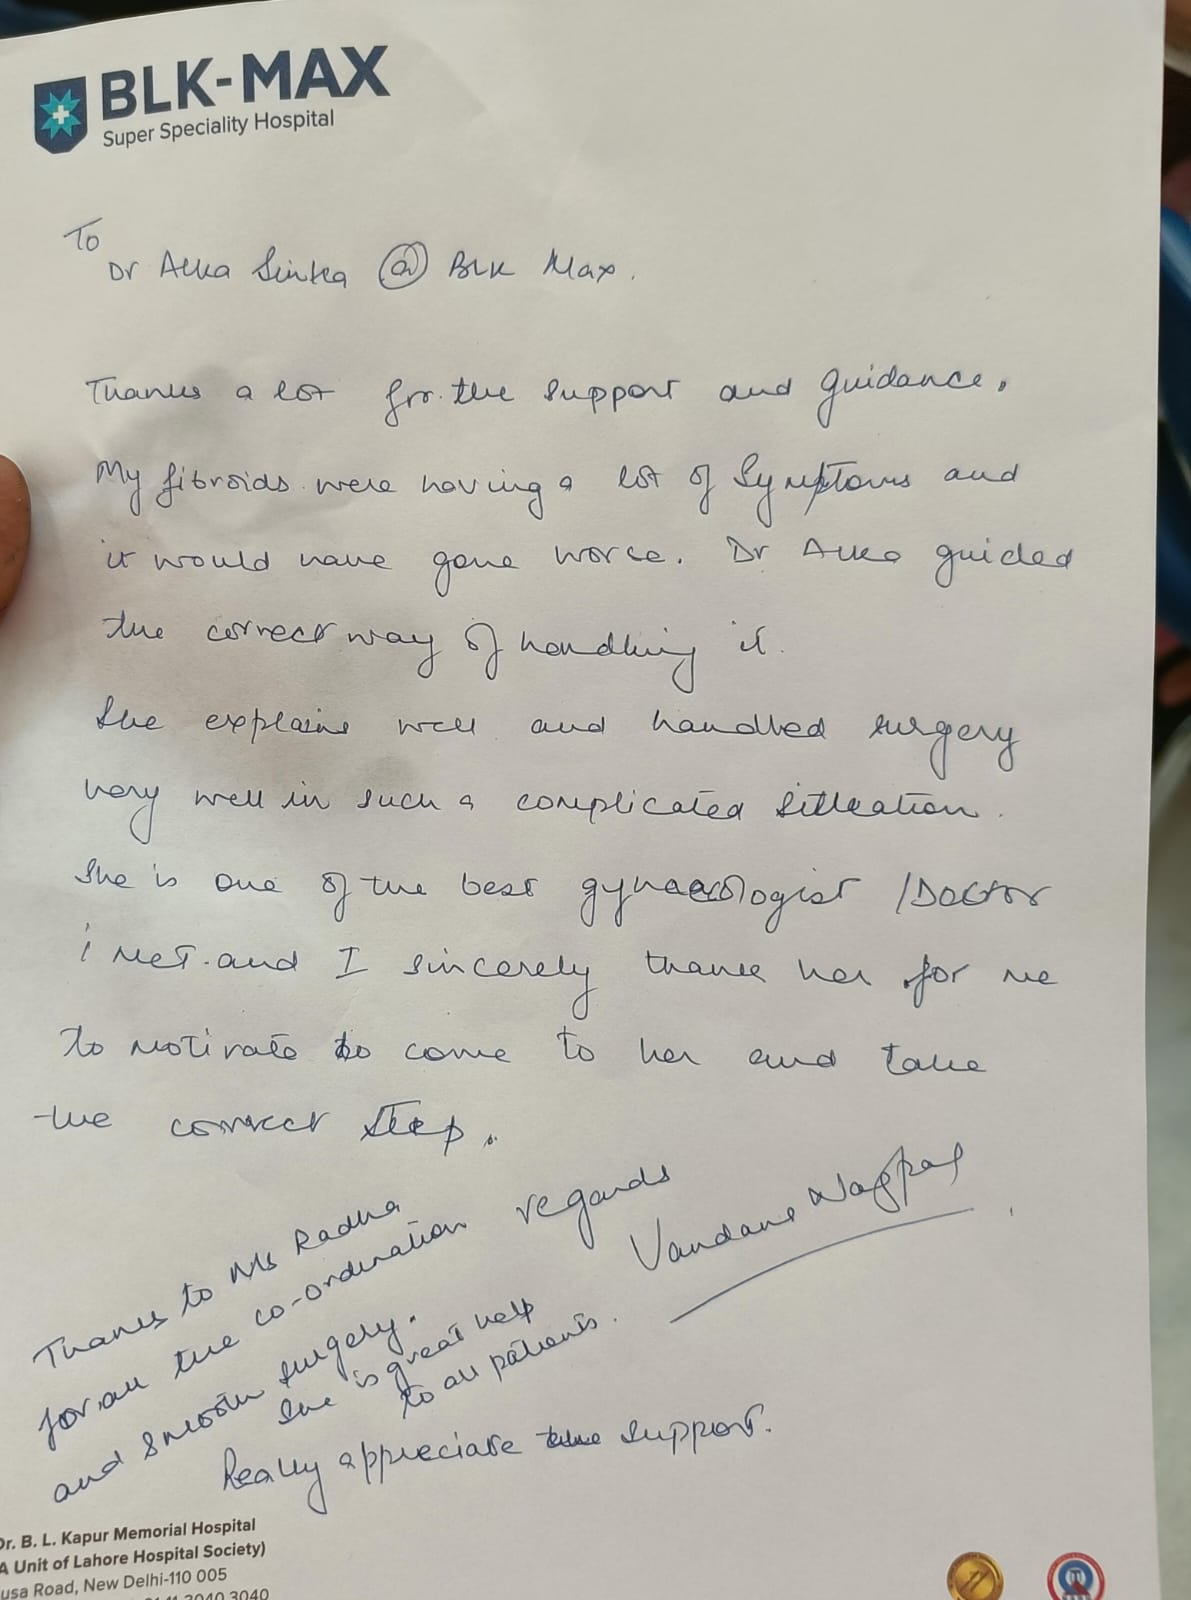 BLK-MAX
Super Speciality Hospital
To
Dr Alka Sinha @ BLK Max.
Thanks a lot for the support and guidance.
My fibroids were having a lot of Symptoms and
it would have gone worse. Dr Alka guided
the correct way of handling it.
She explains well and handled surgery
very well in such a complicated situation.
She is one of the best gynaecologist /Doctor
i met and I sincerely thank her for me
to motivate to come to her and take
the correct step.
regards
Vandana Nagpal
Thanks to Ms Radha
for all the co-ordination
and smooth surgery.
She is great help
to all patients.
Really appreciate the support.
Dr. B. L. Kapur Memorial Hospital
A Unit of Lahore Hospital Society)
usa Road, New Delhi-110 005
3040 3040